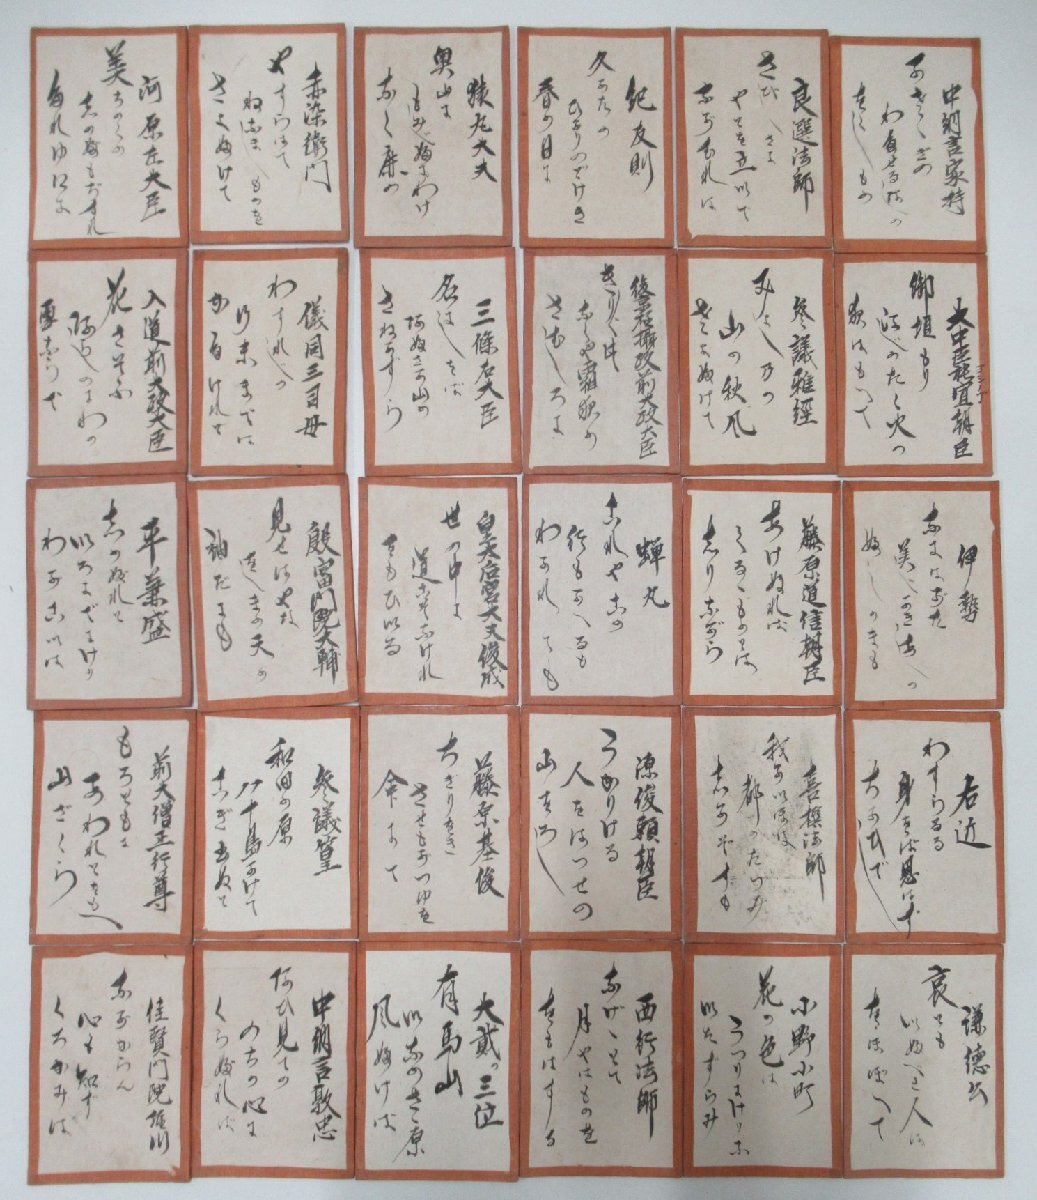 中納言家持
かさゝきの
わたせるはしの
をくしもの
良暹法師
さびしさに
やとを立いて
なかむれは
紀友則
久かたの
ひかりのどけき
春の日に
猿丸大夫
奥山に
もみぢふみわけ
なく鹿の
赤染衛門
やすらはて
ねなましものを
さよふけて
河原左大臣
美ちのくの
しのふもぢすれ
たれゆゑに
大中臣能宣朝臣
御垣もり
衛士のたく火の
夜はもへて
参議雅経
みよし乃の
山の秋風
さよふけて
後京極摂政前太政大臣
きりく\す
なくや霜夜の
さむしろに
三條右大臣
名にしおはば
あふさか山の
さねかつら
儀同三司母
わすれしの
行末までは
かたけれは
入道前大政大臣
花さそふ
あらしのにわの
雪ならで
伊勢
なにはがた
美じかき芦の
ふしのまも
藤原道信朝臣
あけぬれば
くるゝものとは
しりながら
蝉丸
これやこの
行もかへるも
わかれては
皇太后宮大夫俊成
世の中よ
道こそなけれ
おもひいる
殷富門院大輔
見せはやな
をしまの天の
袖だにも
平兼盛
しのぶれと
いろにでにけり
わかこいは
右近
わすらるる
身をば思はず
ちかひてし
喜撰法師
我がいほは
都のたつみ
しかぞすむ
源俊頼朝臣
うかりける
人をはつせの
山をろし
藤原基俊
ちぎりをき
させもがつゆを
命にて
参議篁
和田の原
八十島かけて
こぎ出ぬと
前大僧正行尊
もろともに
あわれとおもへ
山ざくら
謙徳公
哀とも
いふべき人は
をもほへて
小野小町
花の色は
うつりにけりな
いたずらに
西行法師
なげゝとて
月やはものを
をもはする
大貳の三位
有馬山
いなのさゝ原
風ふけば
中納言敦忠
あひ見ての
のちの心に
くらぶれば
待賢門院堀川
ながからん
心も知ず
くろかみの